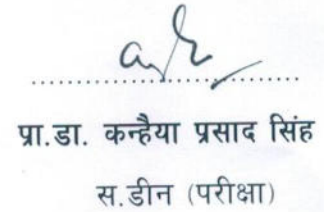 प्रा.डा. कन्हैया प्रसाद सिंह
स.डीन (परीक्षा)